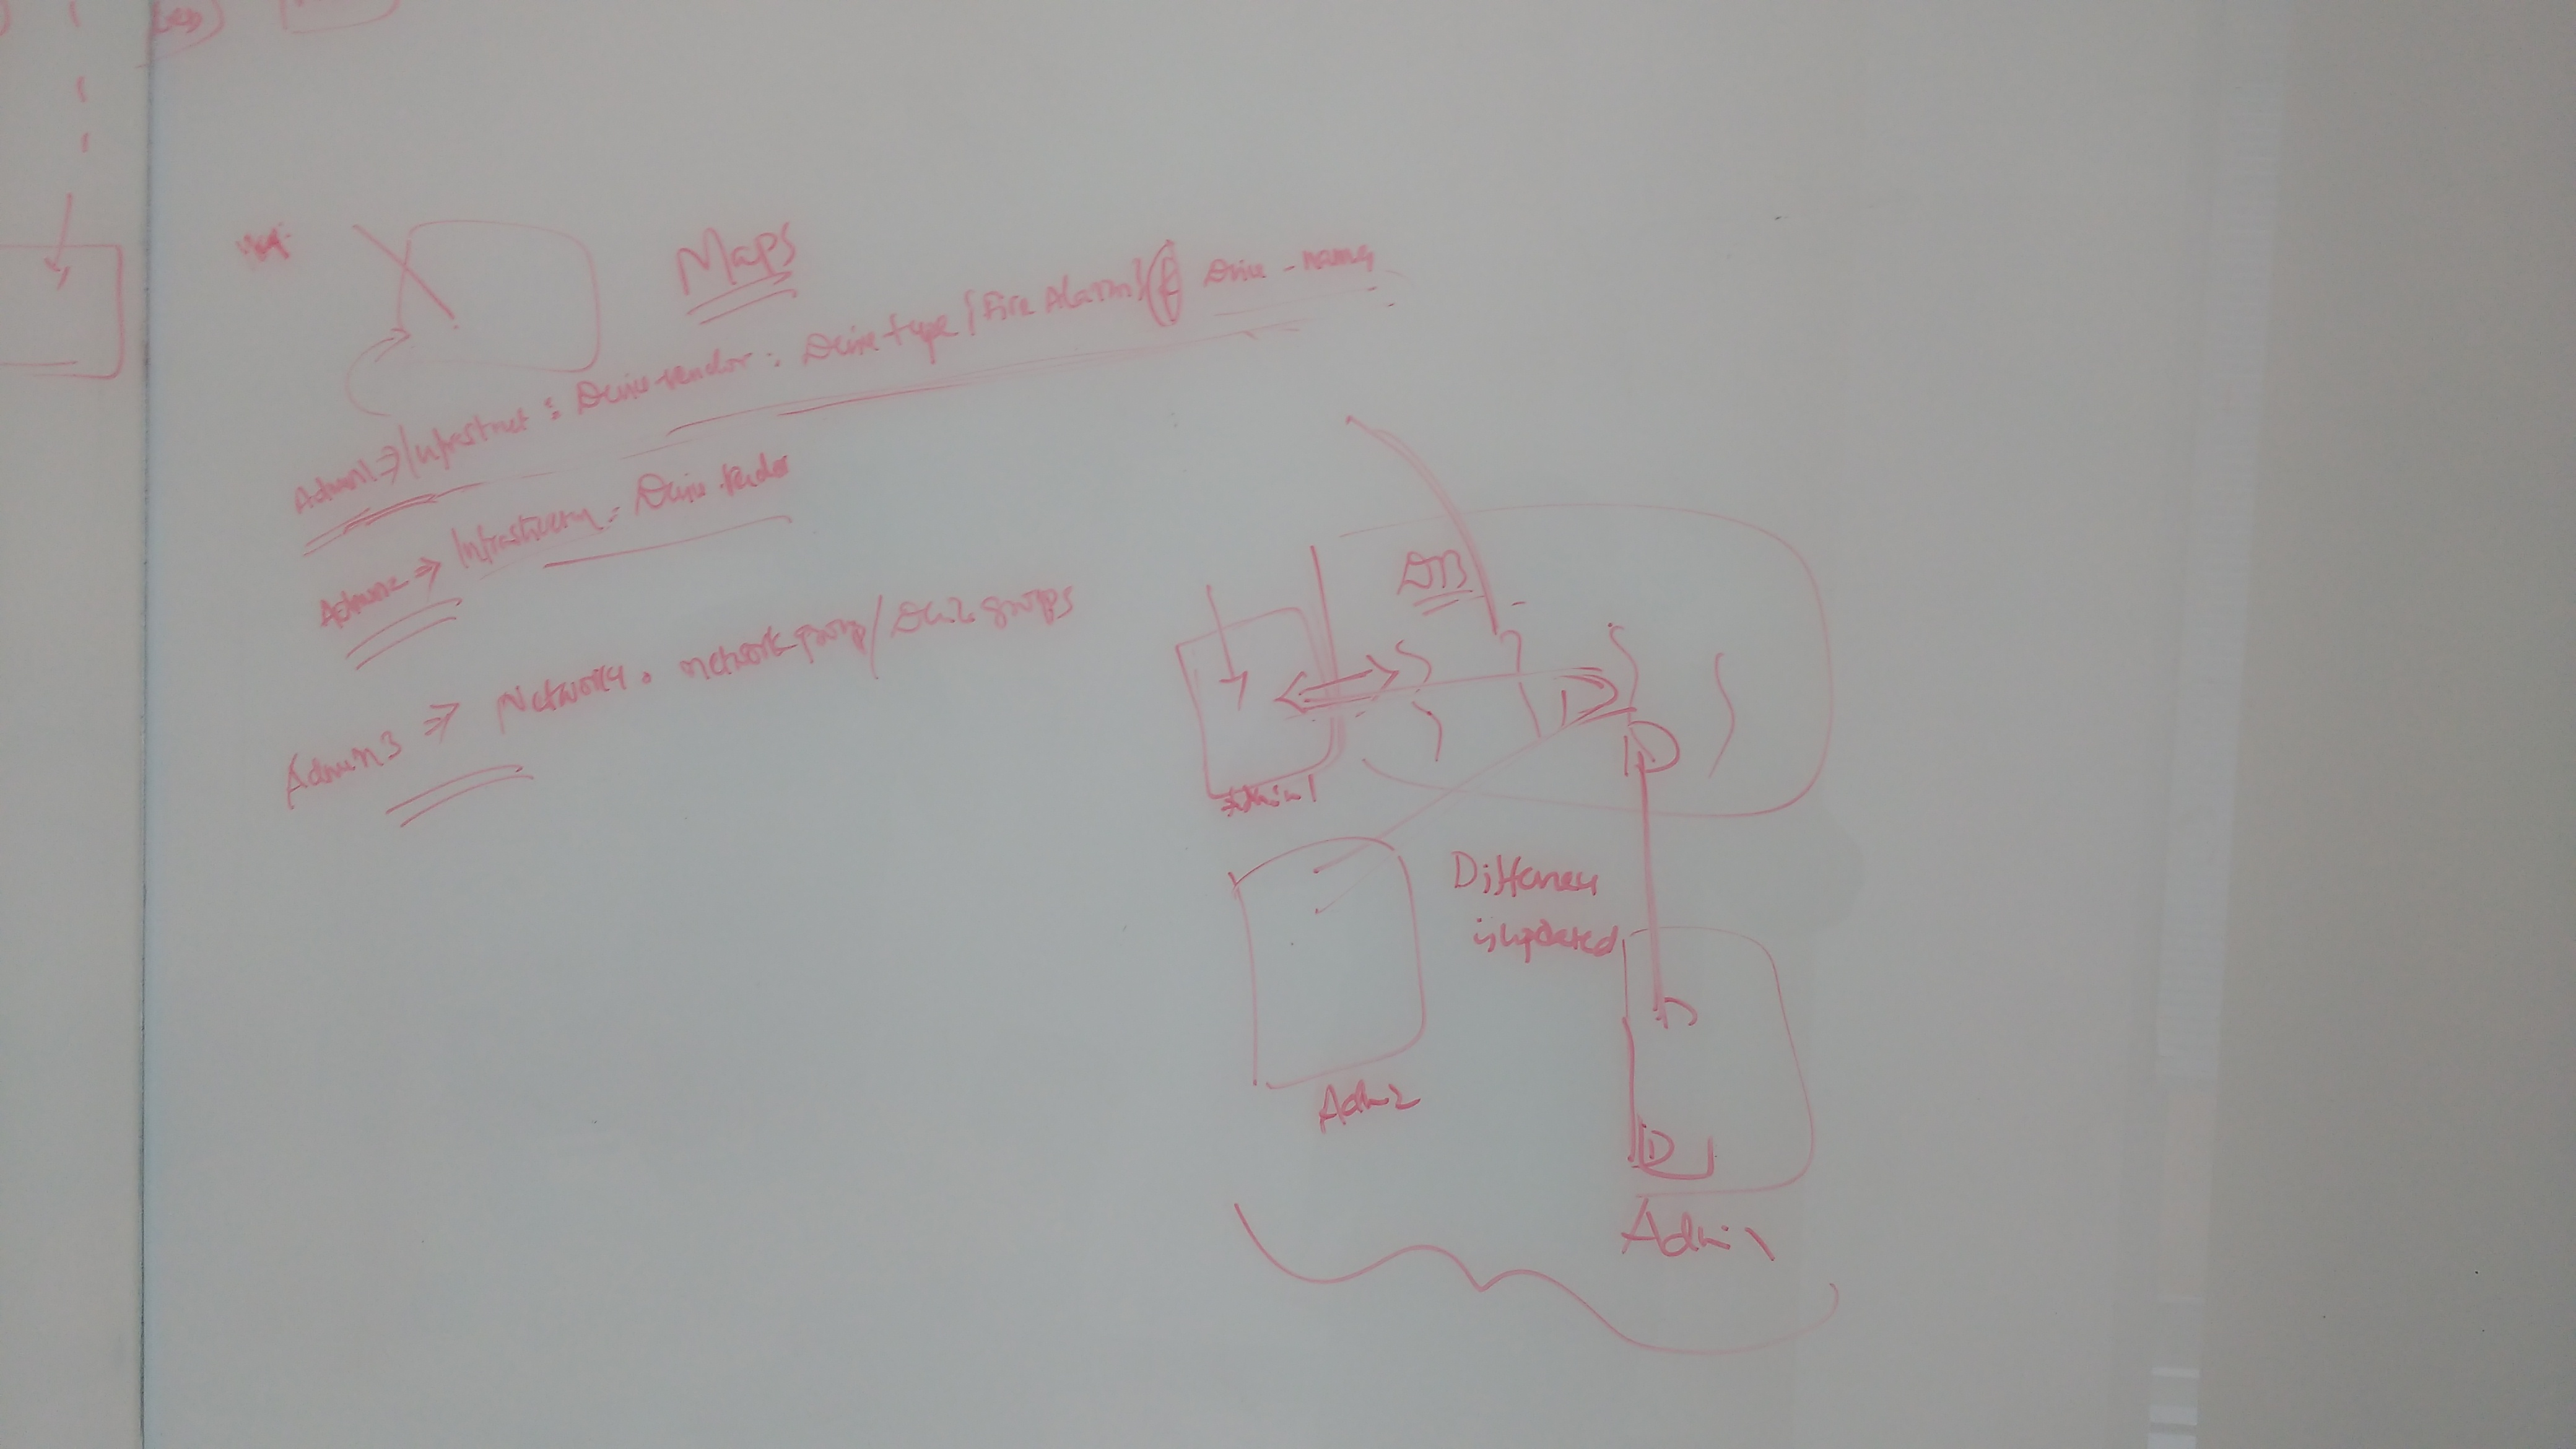 Maps
Admin1 => Infrastruct : Device-vendor : Device type {Fire Alarm} Device-name
Admin2 => Infrastructure : Device-vendor
Admin3 => Network . network group/Device groups
DB
D
D
Admin1
Difference
is updated
D
Adm2
D
Admin